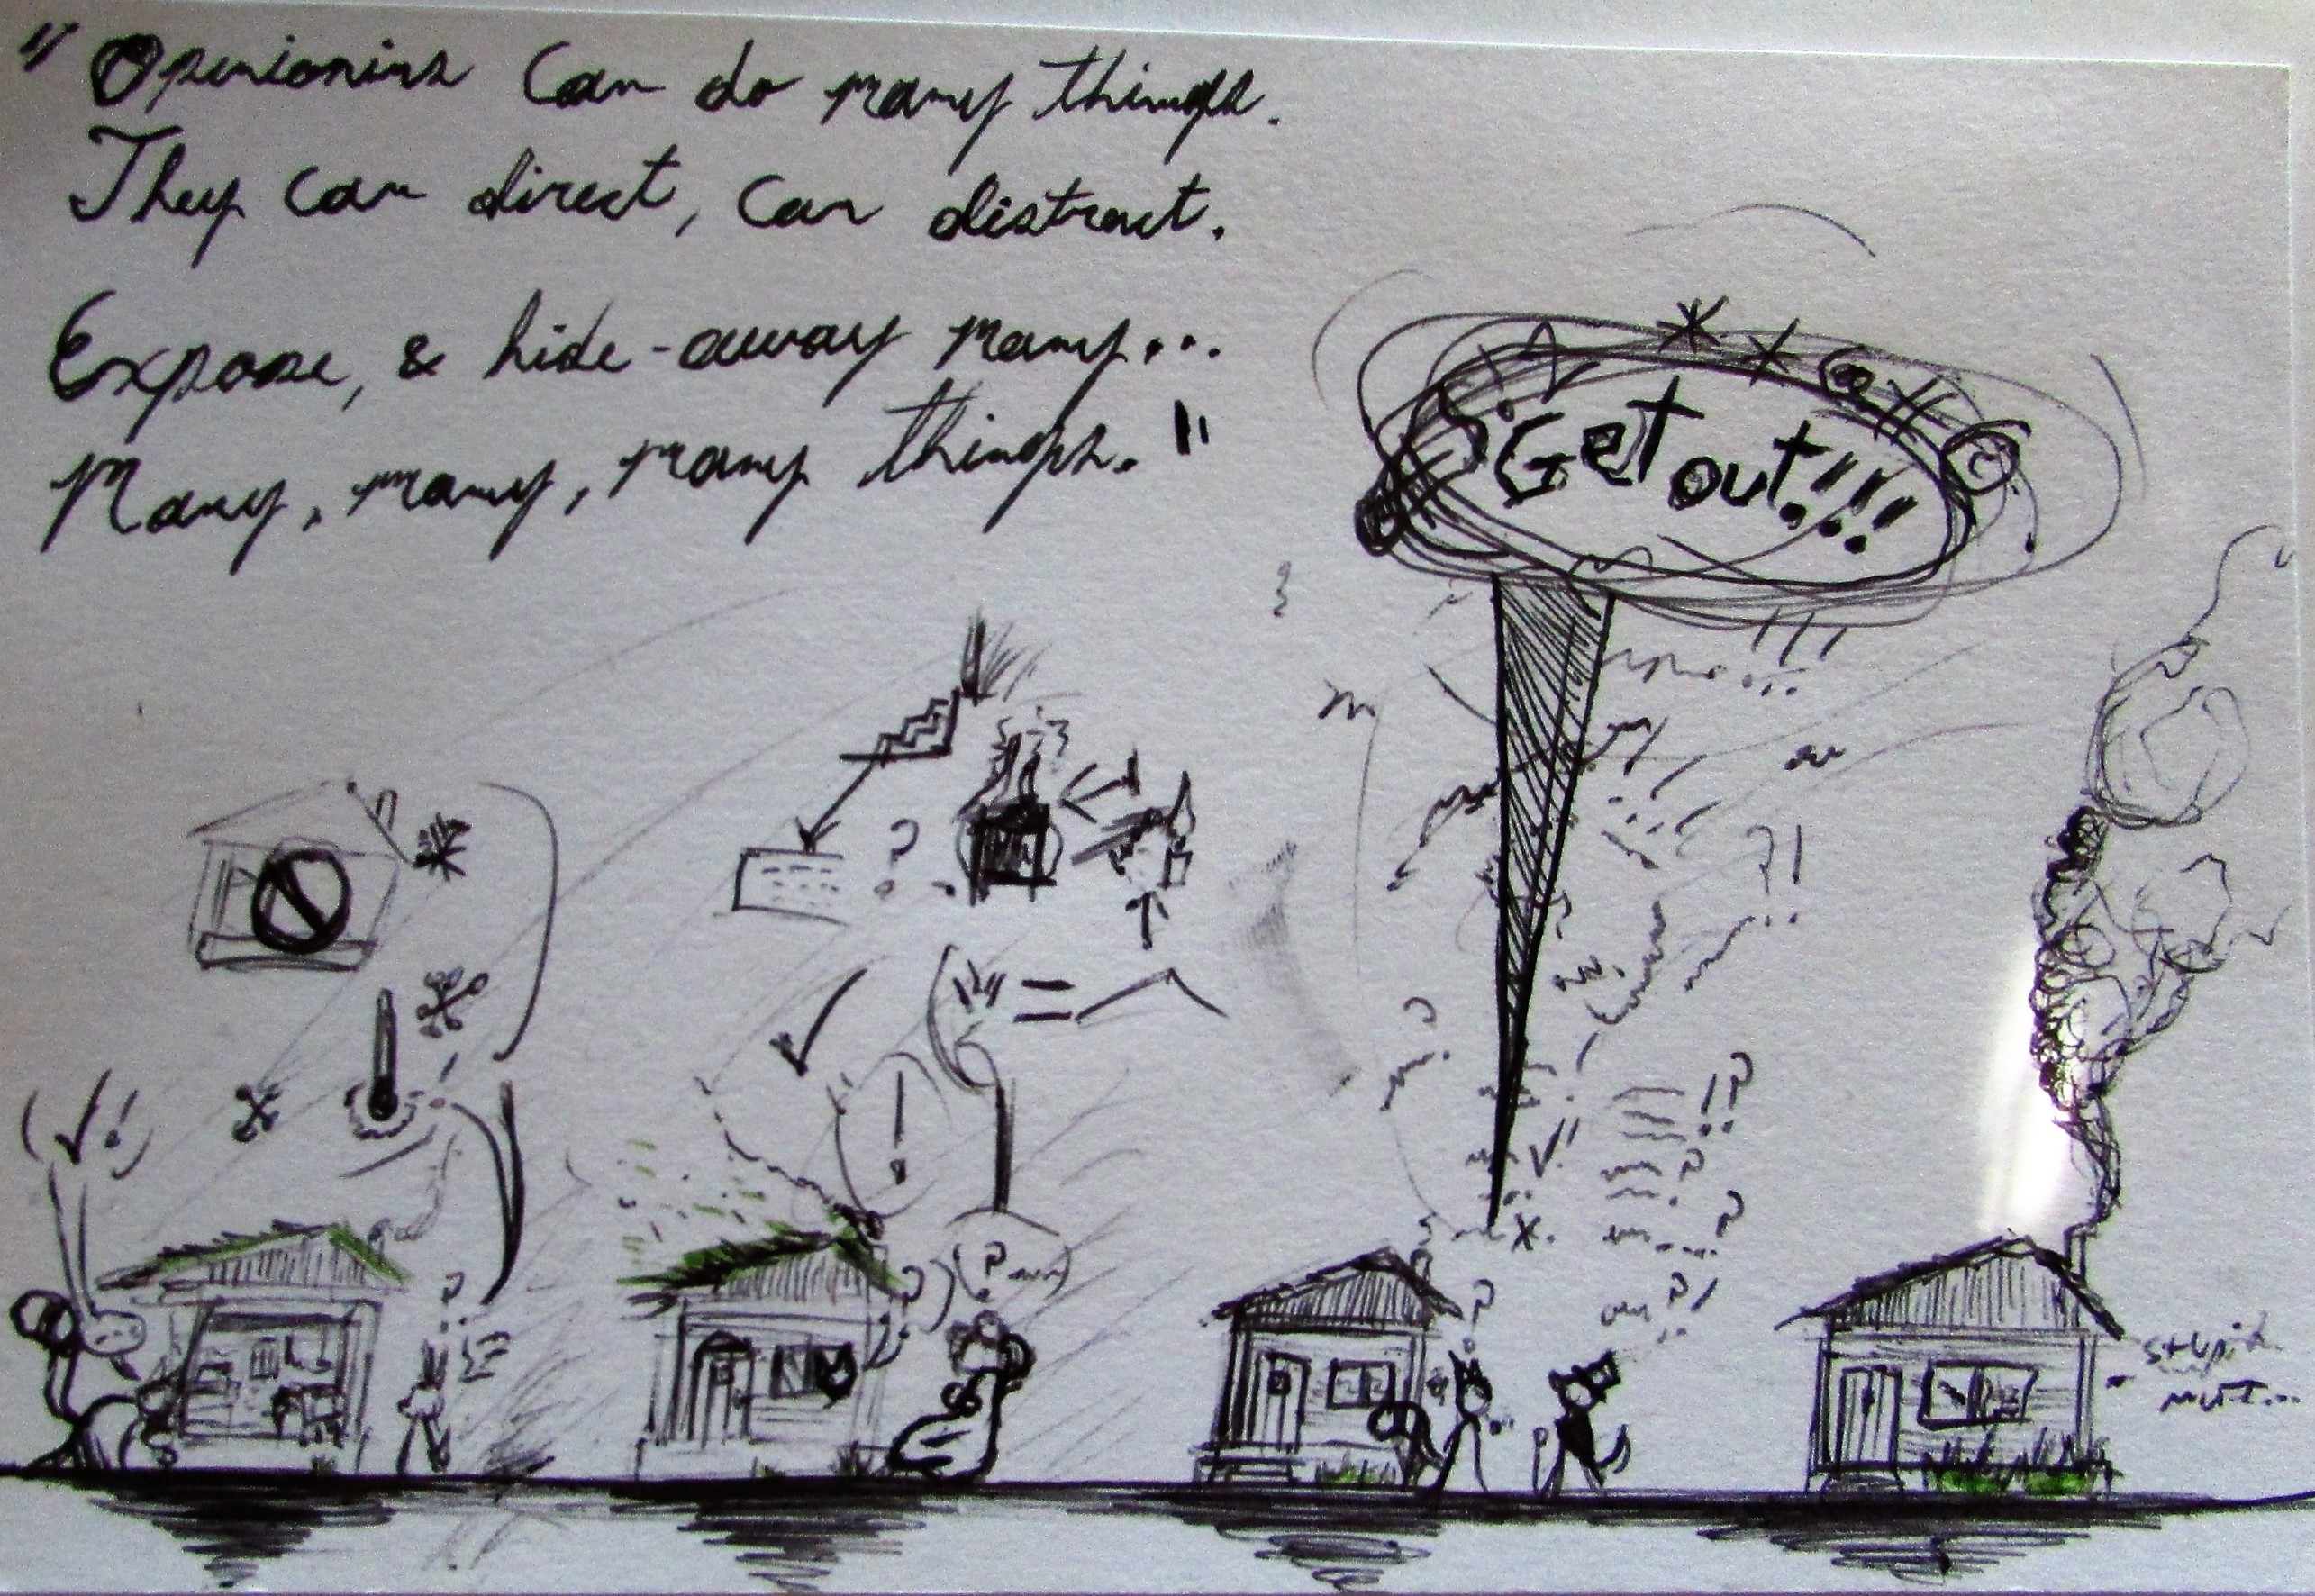 "Openionins can do many things.
They can direct, can distract.
Expose, & hide-away many...
Many, many, many things."
Get out!!!
stupid
mutt...